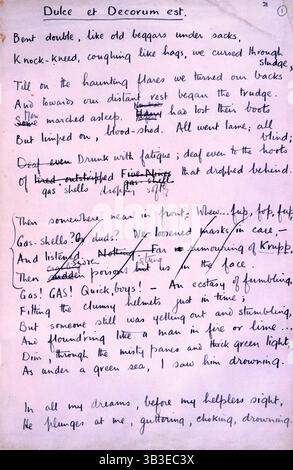 Dulce et Decorum est.
21
1
Bent double, like old beggars under sacks,
Knock-kneed, coughing like hags, we cursed through
sludge,
Till on the haunting flares we turned our backs
And towards our distant rest began the trudge.
Men
Some marched asleep. Many had lost their boots
But limped on, blood-shod. All went lame; all
blind;
Deaf even Drunk with fatigue; deaf even to the hoots
Of tired outstripped Five-Nines that dropped behind.
gas shells dropping softly
Then somewhere near in front: Whew... fup, fop, fup,
Gas-shells? Or duds? We loosened masks in case, —
And listened. Nothing. Far rumouring of Krupp.
stung
Then sudden poisons hit us in the face.
Gas! GAS! Quick, boys! — An ecstasy of fumbling,
Fitting the clumsy helmets just in time;
But someone still was yelling out and stumbling,
And floundring like a man in fire or lime...
Dim, through the misty panes and thick green light,
As under a green sea, I saw him drowning.
In all my dreams, before my helpless sight,
He plunges at me, guttering, choking, drowning.
alamy
Image ID: 3B3EC3X
www.alamy.com